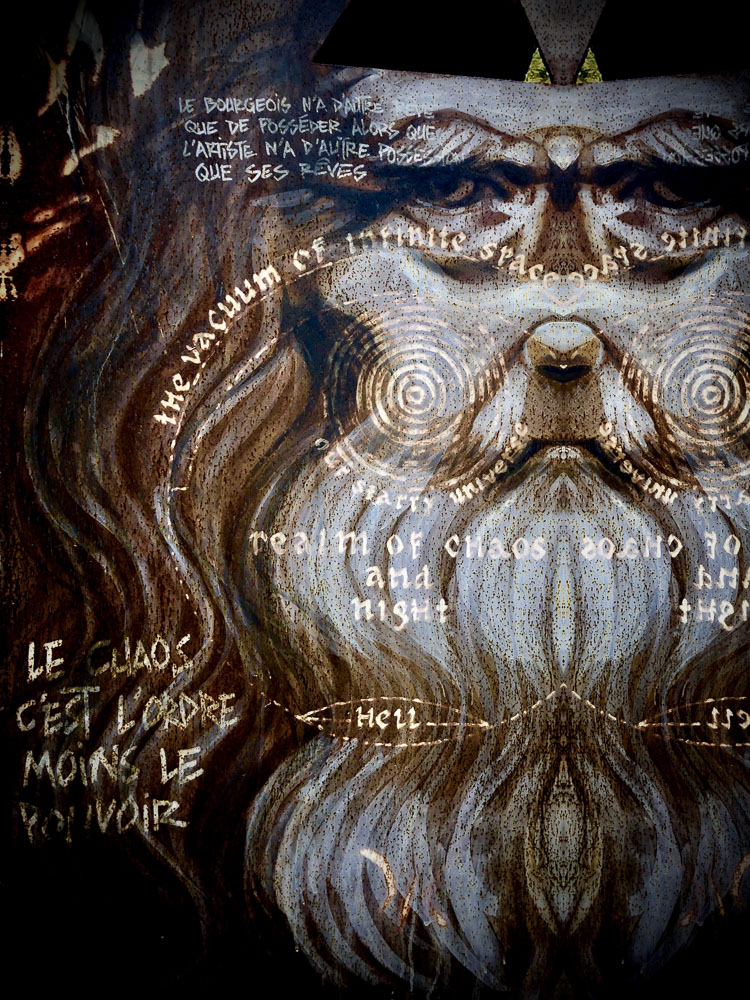 LE BOURGEOIS N'A D'AUTRE RÊVE
QUE DE POSSÉDER ALORS QUE
L'ARTISTE N'A D'AUTRE POSSESSION
QUE SES RÊVES
the vacuum of infinite space
our starry universe
realm of chaos
and
night
Hell
LE CHAOS
C'EST L'ORDRE
MOINS LE
POUVOIR